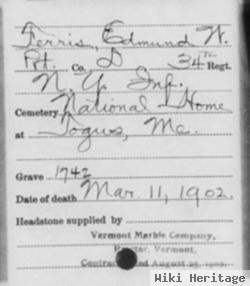 Ferris, Edmund W.
Pvt. Co. D 34th Regt.
N. Y. Inf.
Cemetery National Home
at Togus, Me.
Grave 1742
Date of death Mar. 11, 1902.
Headstone supplied by
Vermont Marble Company,
Proctor, Vermont,
Contract August 25,
Wiki Heritage